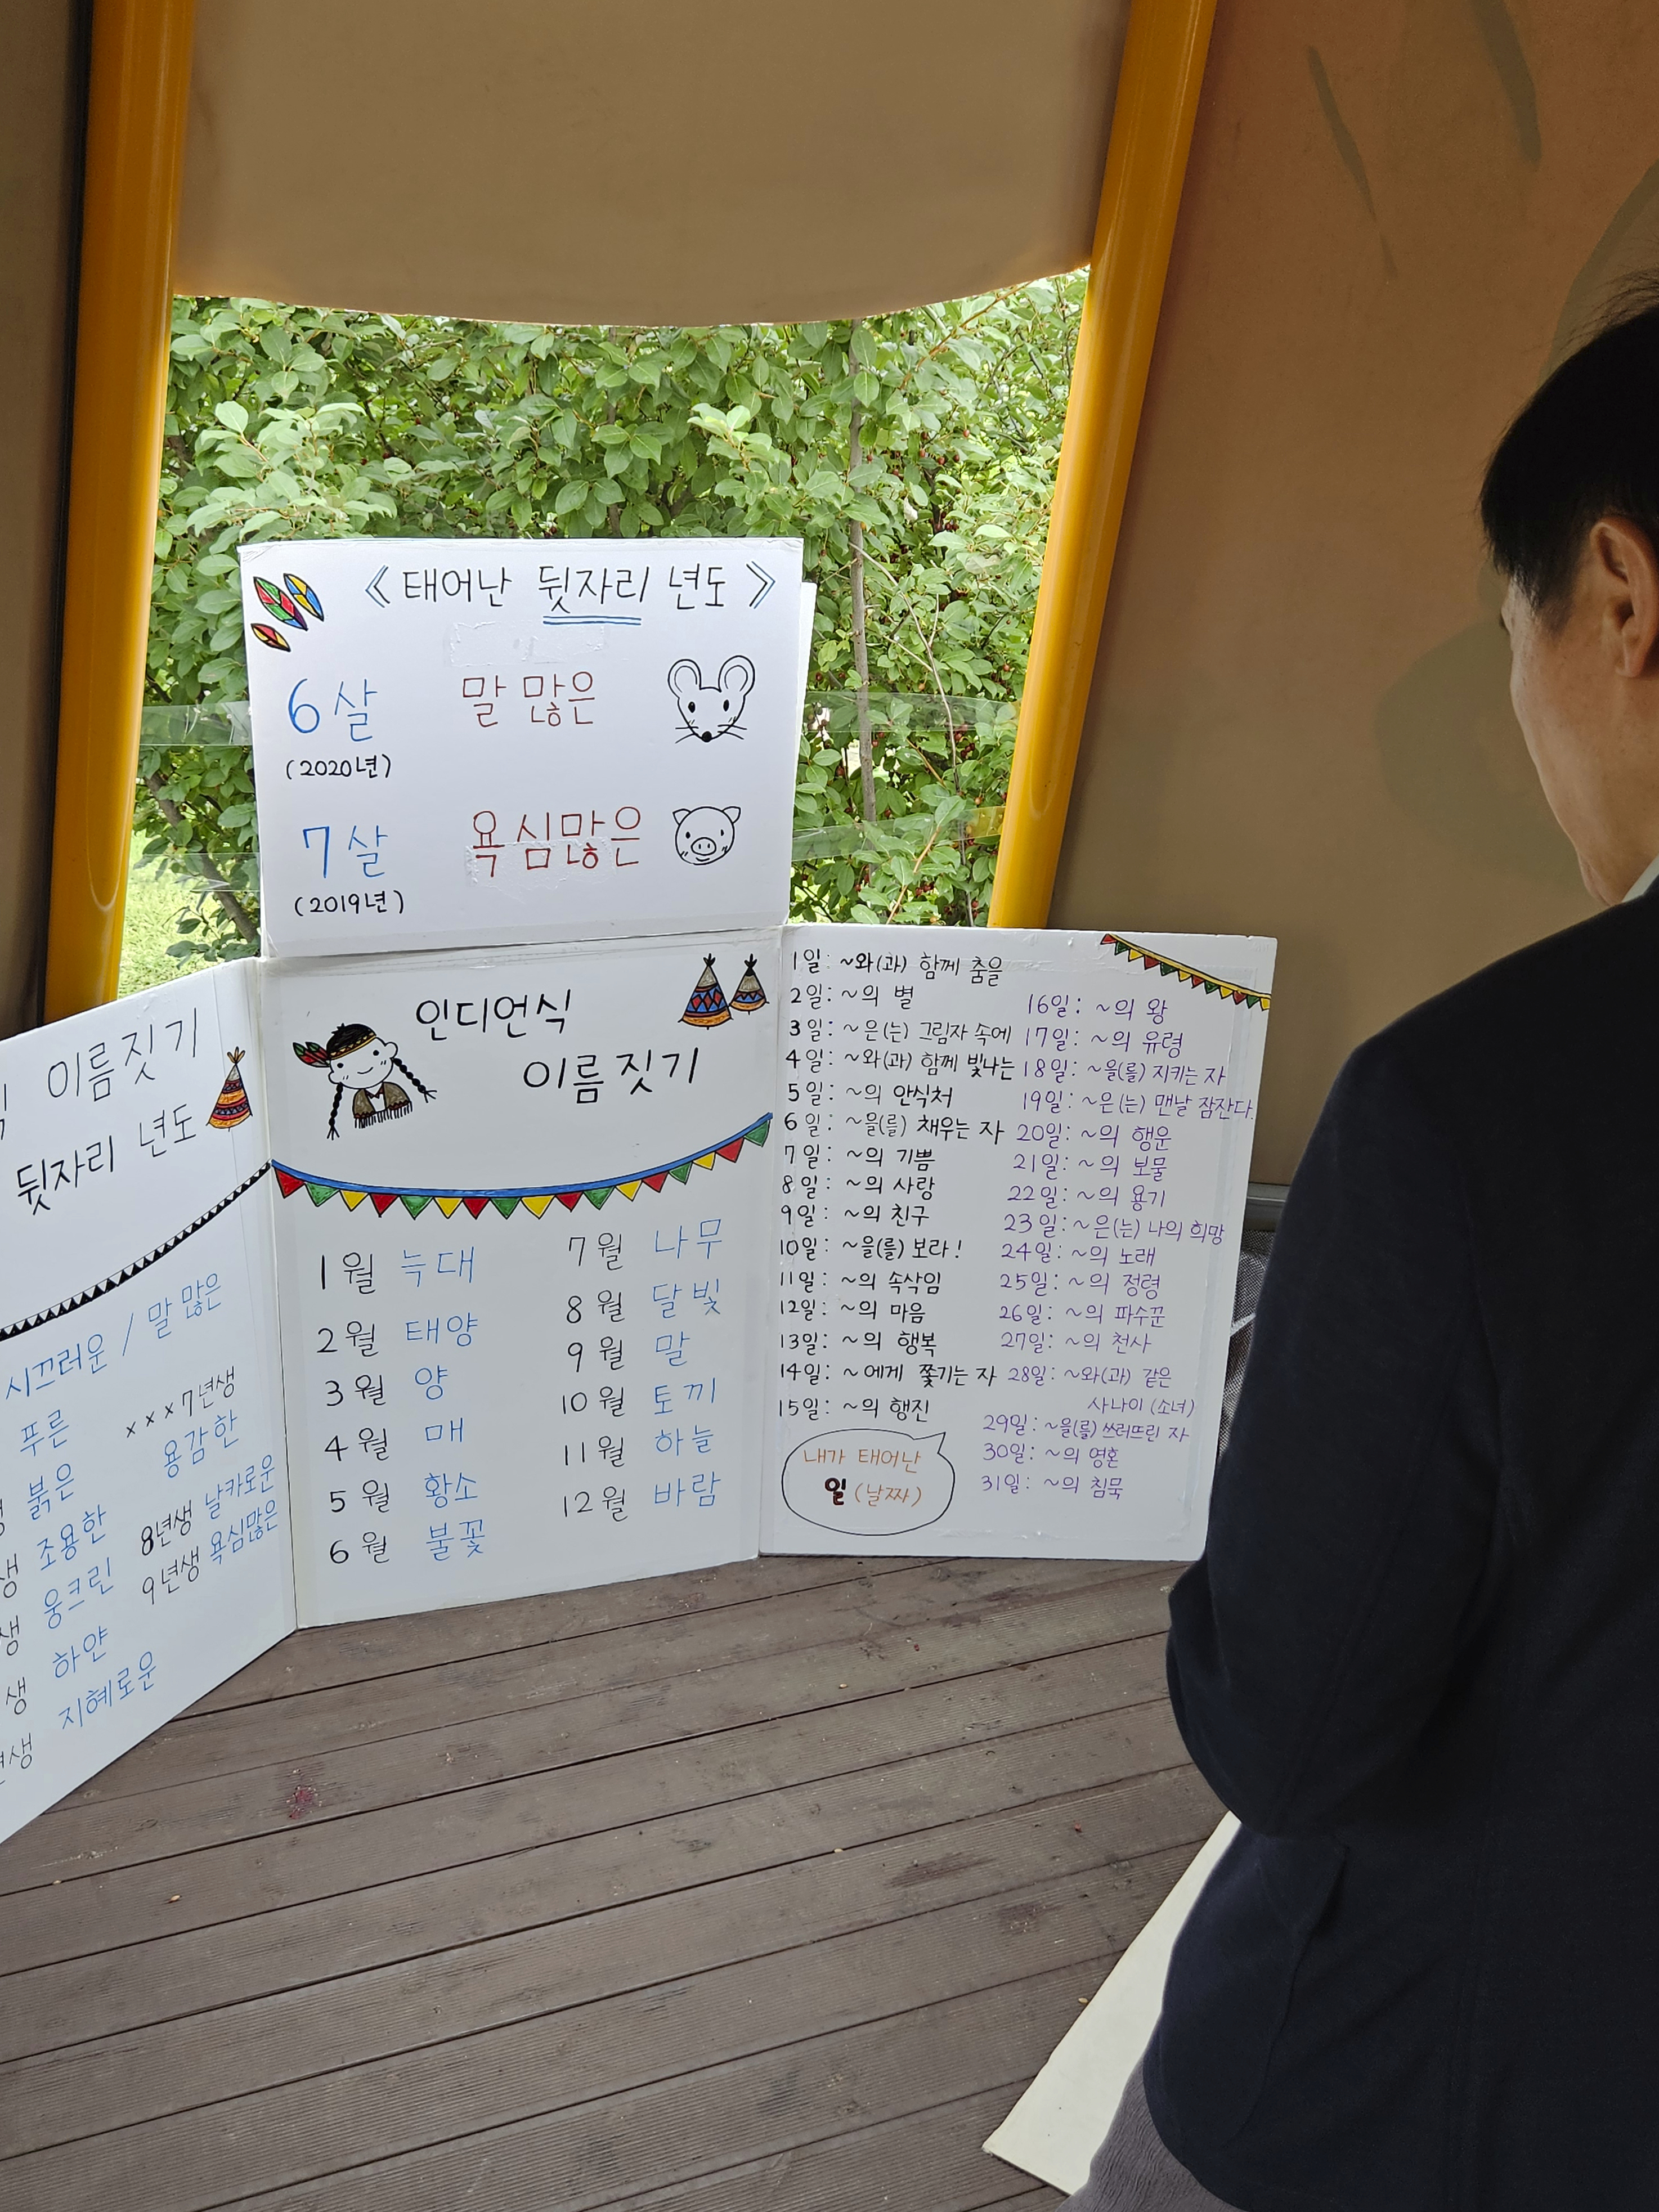 《태어난 뒷자리 년도》
6살 말 많은
(2020년)
7살 욕심많은
(2019년)
이름짓기
뒷자리 년도
시끄러운 / 말 많은
푸른
붉은
조용한
생 웅크린
생 하얀
생 지혜로운
년생
×××7년생
용감한
8년생 날카로운
9년생 욕심많은
인디언식
이름짓기
1월 늑대
2월 태양
3월 양
4월 매
5월 황소
6월 불꽃
7월 나무
8월 달빛
9월 말
10월 토끼
11월 하늘
12월 바람
1일: ~와(과) 함께 춤을
2일: ~의 별
3일: ~은(는) 그림자 속에
4일: ~와(과) 함께 빛나는
5일: ~의 안식처
6일: ~을(를) 채우는 자
7일: ~의 기쁨
8일: ~의 사랑
9일: ~의 친구
10일: ~을(를) 보라!
11일: ~의 속삭임
12일: ~의 마음
13일: ~의 행복
14일: ~에게 쫓기는 자
15일: ~의 행진
내가 태어난
일 (날짜)
16일: ~의 왕
17일: ~의 유령
18일: ~을(를) 지키는 자
19일: ~은(는) 맨날 잠잔다.
20일: ~의 행운
21일: ~의 보물
22일: ~의 용기
23일: ~은(는) 나의 희망
24일: ~의 노래
25일: ~의 정령
26일: ~의 파수꾼
27일: ~의 천사
28일: ~와(과) 같은
사나이 (소녀)
29일: ~을(를) 쓰러뜨린 자
30일: ~의 영혼
31일: ~의 침묵